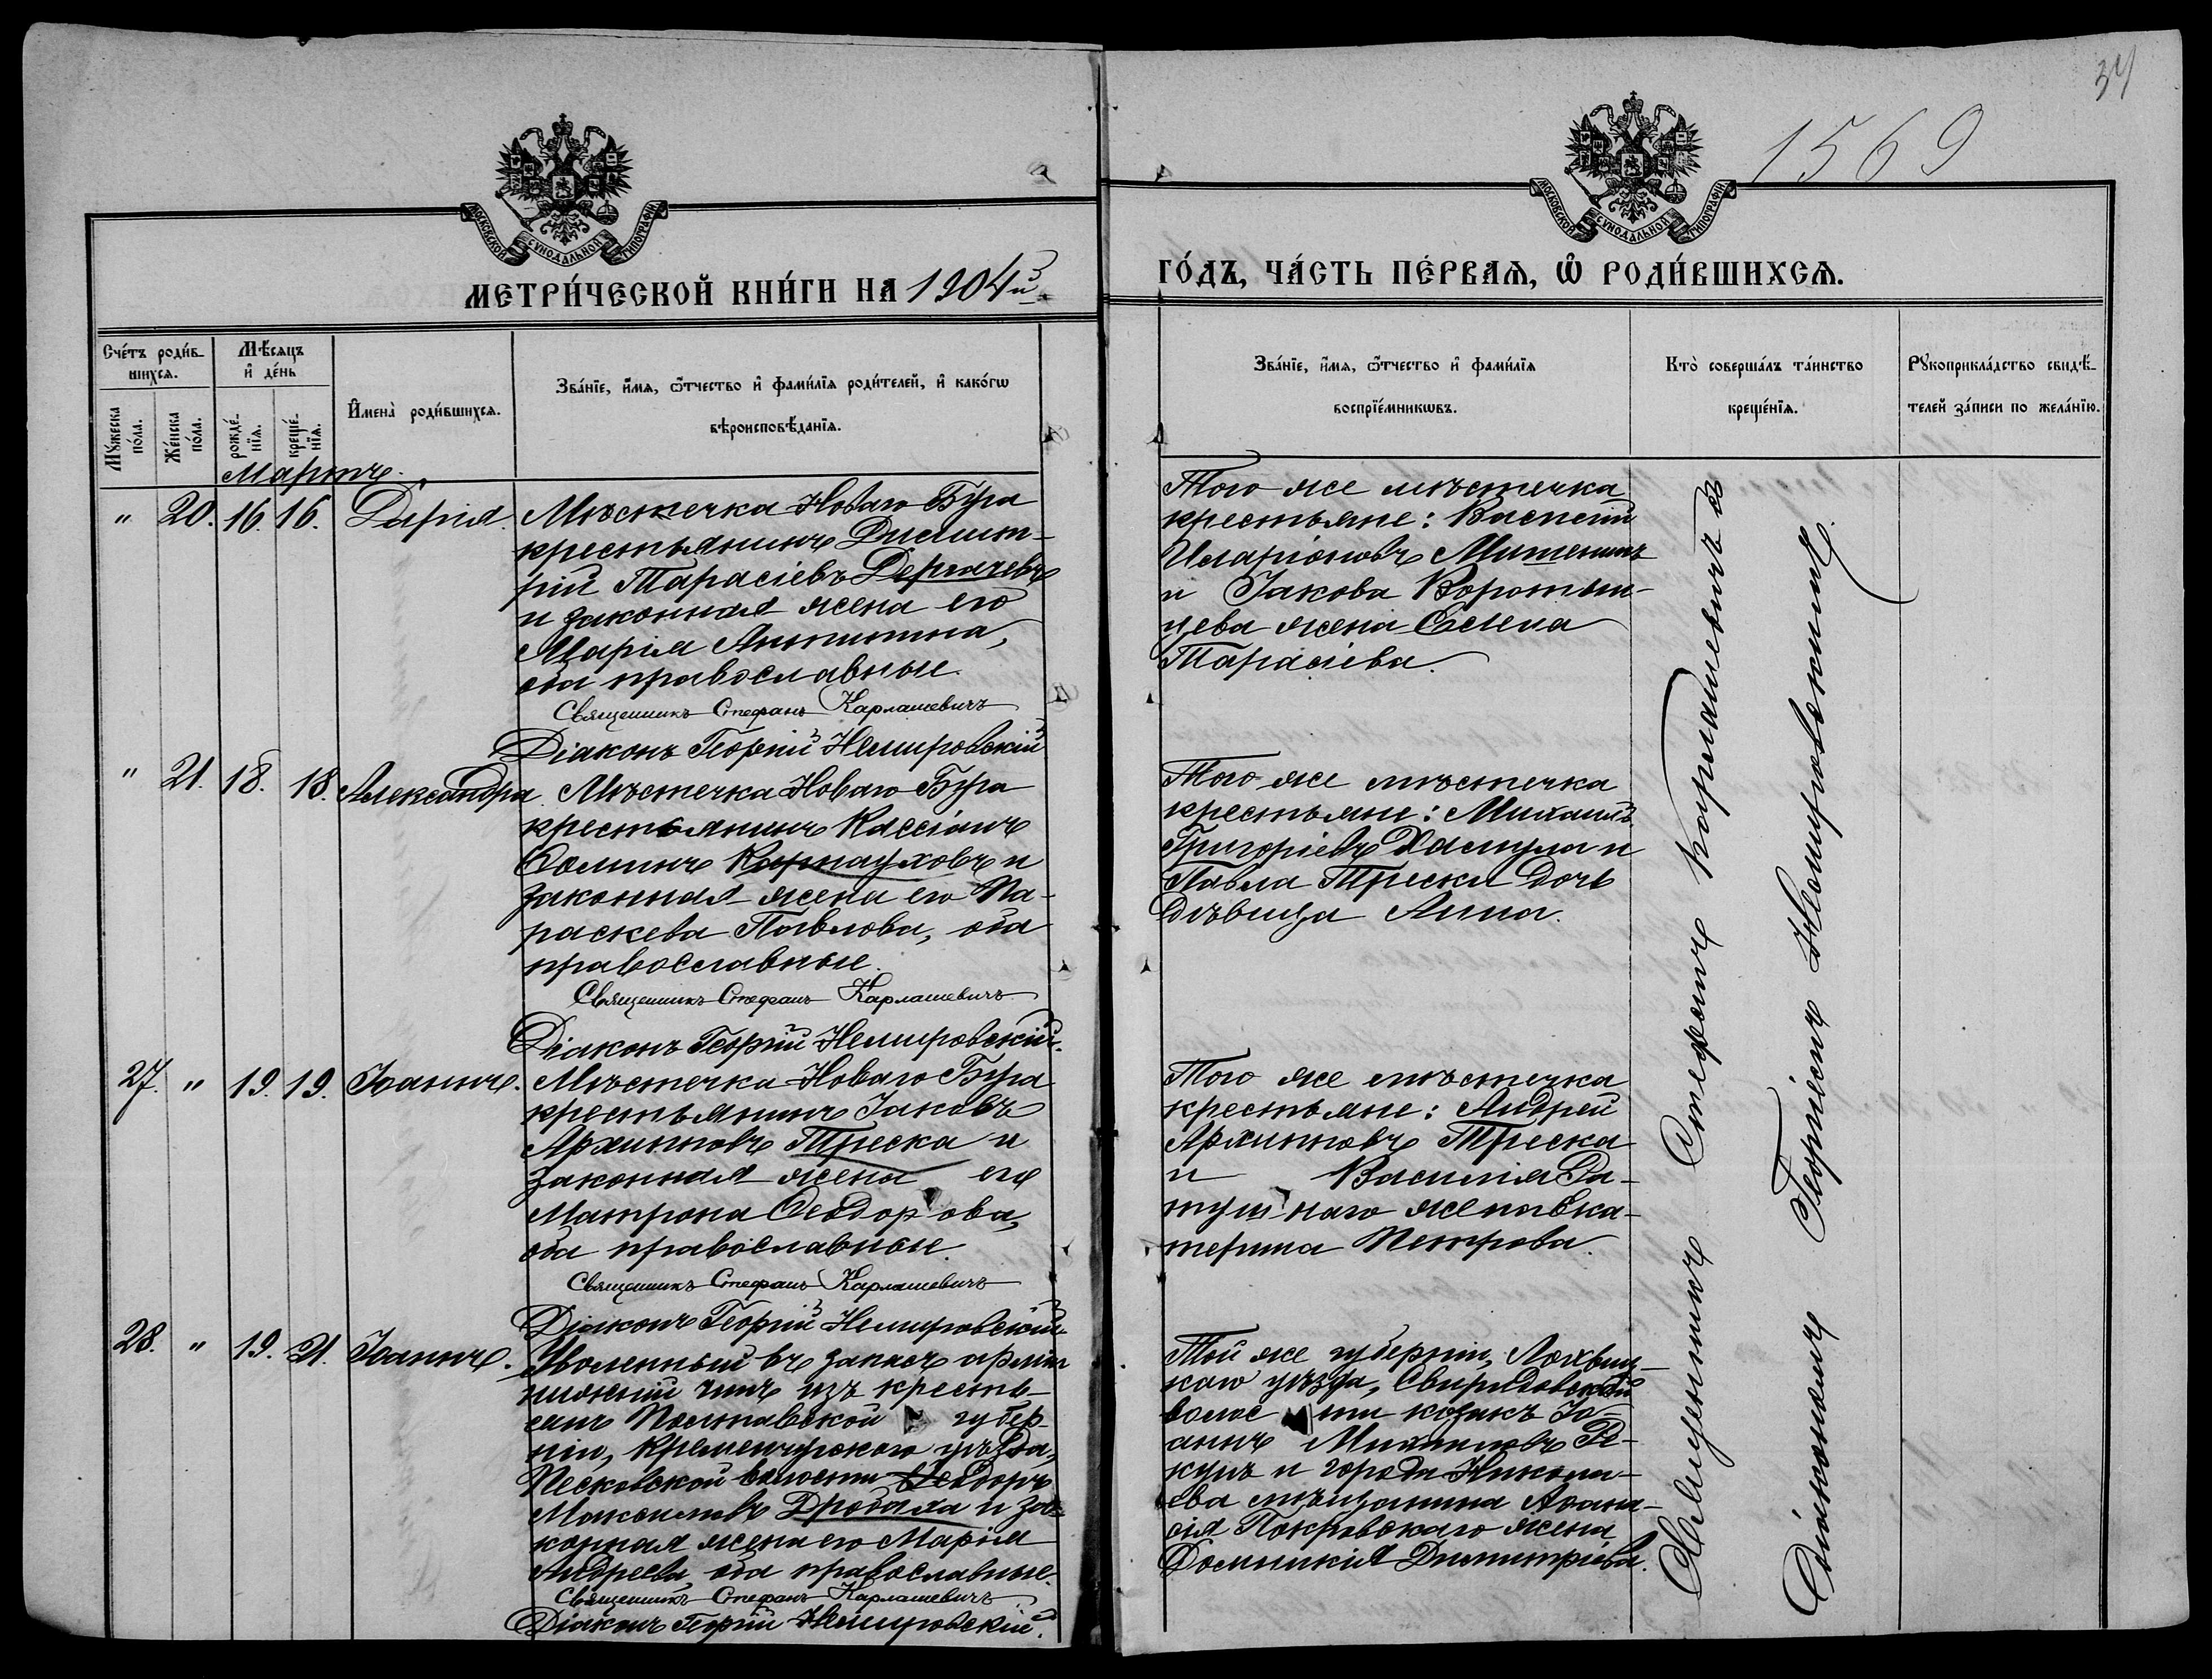 34
1569
МОСКОВСКОЙ СѴНОДАЛЬНОЙ ТИПОГРАФІИ
МОСКОВСКОЙ СѴНОДАЛЬНОЙ ТИПОГРАФІИ
МЕТРИ́ЧЕСКОЙ КНИ́ГИ НА 1904й
ГО́ДЪ, ЧА́СТЬ ПЕ́РВАѦ, Ѡ҆ РОДИ́ВШИХСѦ.
Сче́тъ роди́в-
шихсѧ.
Мꙋ́жеска по́ла.
Же́нска по́ла.
Мѣ́сѧцъ и҆ де́нь
рожде́-нїѧ.
креще́-нїѧ.
И҆мена̀ роди́вшихсѧ.
Зва́нїе, и҆́мѧ, ѻ҆́тчество и҆ фами́лїѧ роди́телей, и҆ како́гѡ
вѣроисповѣ́данїѧ.
Зва́нїе, и҆́мѧ, ѻ҆́тчество и҆ фами́лїѧ
воспрїе́мникѡвъ.
Кто̀ соверша́лъ та́инство
креще́нїѧ.
Рꙋкоприкла́дство свидѣ́-
телей за́писи по жела́нїю.
Мартъ.
" 20. 16. 16. Дарія.
Мѣстечка Новаго Буга
крестьянинъ Димит-
рій Тарасіевъ Дергачевъ
и законная жена его
Марія Антипина,
оба православные.
Священникъ Стефанъ Карлашевичъ
Діаконъ Георгій Немировскій
Того же мѣстечка
крестьяне: Василій
Иларіоновъ Митенинъ
и Іакова Воротын-
цева жена Елена
Тарасіева.
" 21. 18. 18. Александра
Мѣстечка Новаго Буга
крестьянинъ Кассіанъ
Ѳоминъ Карнауховъ и
законная жена его Па-
раскева Павлова, оба
православные.
Священникъ Стефанъ Карлашевичъ
Діаконъ Георгій Немировскій.
Того же мѣстечка
крестьяне: Михаилъ
Григоріевъ и
Павла Трески дочь
дѣвица Анна.
27. " 19. 19. Іоаннъ.
Мѣстечка Новаго Буга
крестьянинъ Іаковъ
Архиповъ Треска и
законная жена его
Матрона Ѳеодорова,
оба православные.
Священникъ Стефанъ Карлашевичъ
Діаконъ Георгій Немировскій
Того же мѣстечка
крестьяне: Андрей
Архиповъ Треска
и Василія Ра-
тушнаго жена Ека-
терина Петрова.
28. " 19. 21. Іоаннъ.
Уволенный въ запасъ арміи
нижній чинъ изъ кресть-
янъ Полтавской губер-
ніи, Кременчугскаго уѣзда,
Песковской волости Ѳеодоръ
Максимовъ Дробаха и за-
конная жена его Марія
Андреева, оба православные.
Священникъ Стефанъ Карлашевичъ
Діаконъ Георгій Немировскій.
Той же губерніи, Лохвиц-
каго уѣзда, Свиридовской
волости козакъ Іо-
аннъ Михаиловъ Ре-
кунъ и города Никола-
ева мѣщанина Аѳана-
сія Покровскаго жена
Домникія Димитріева.
Священникъ Стефанъ Карлашевичъ съ
Діакономъ Георгіемъ Немировскимъ.